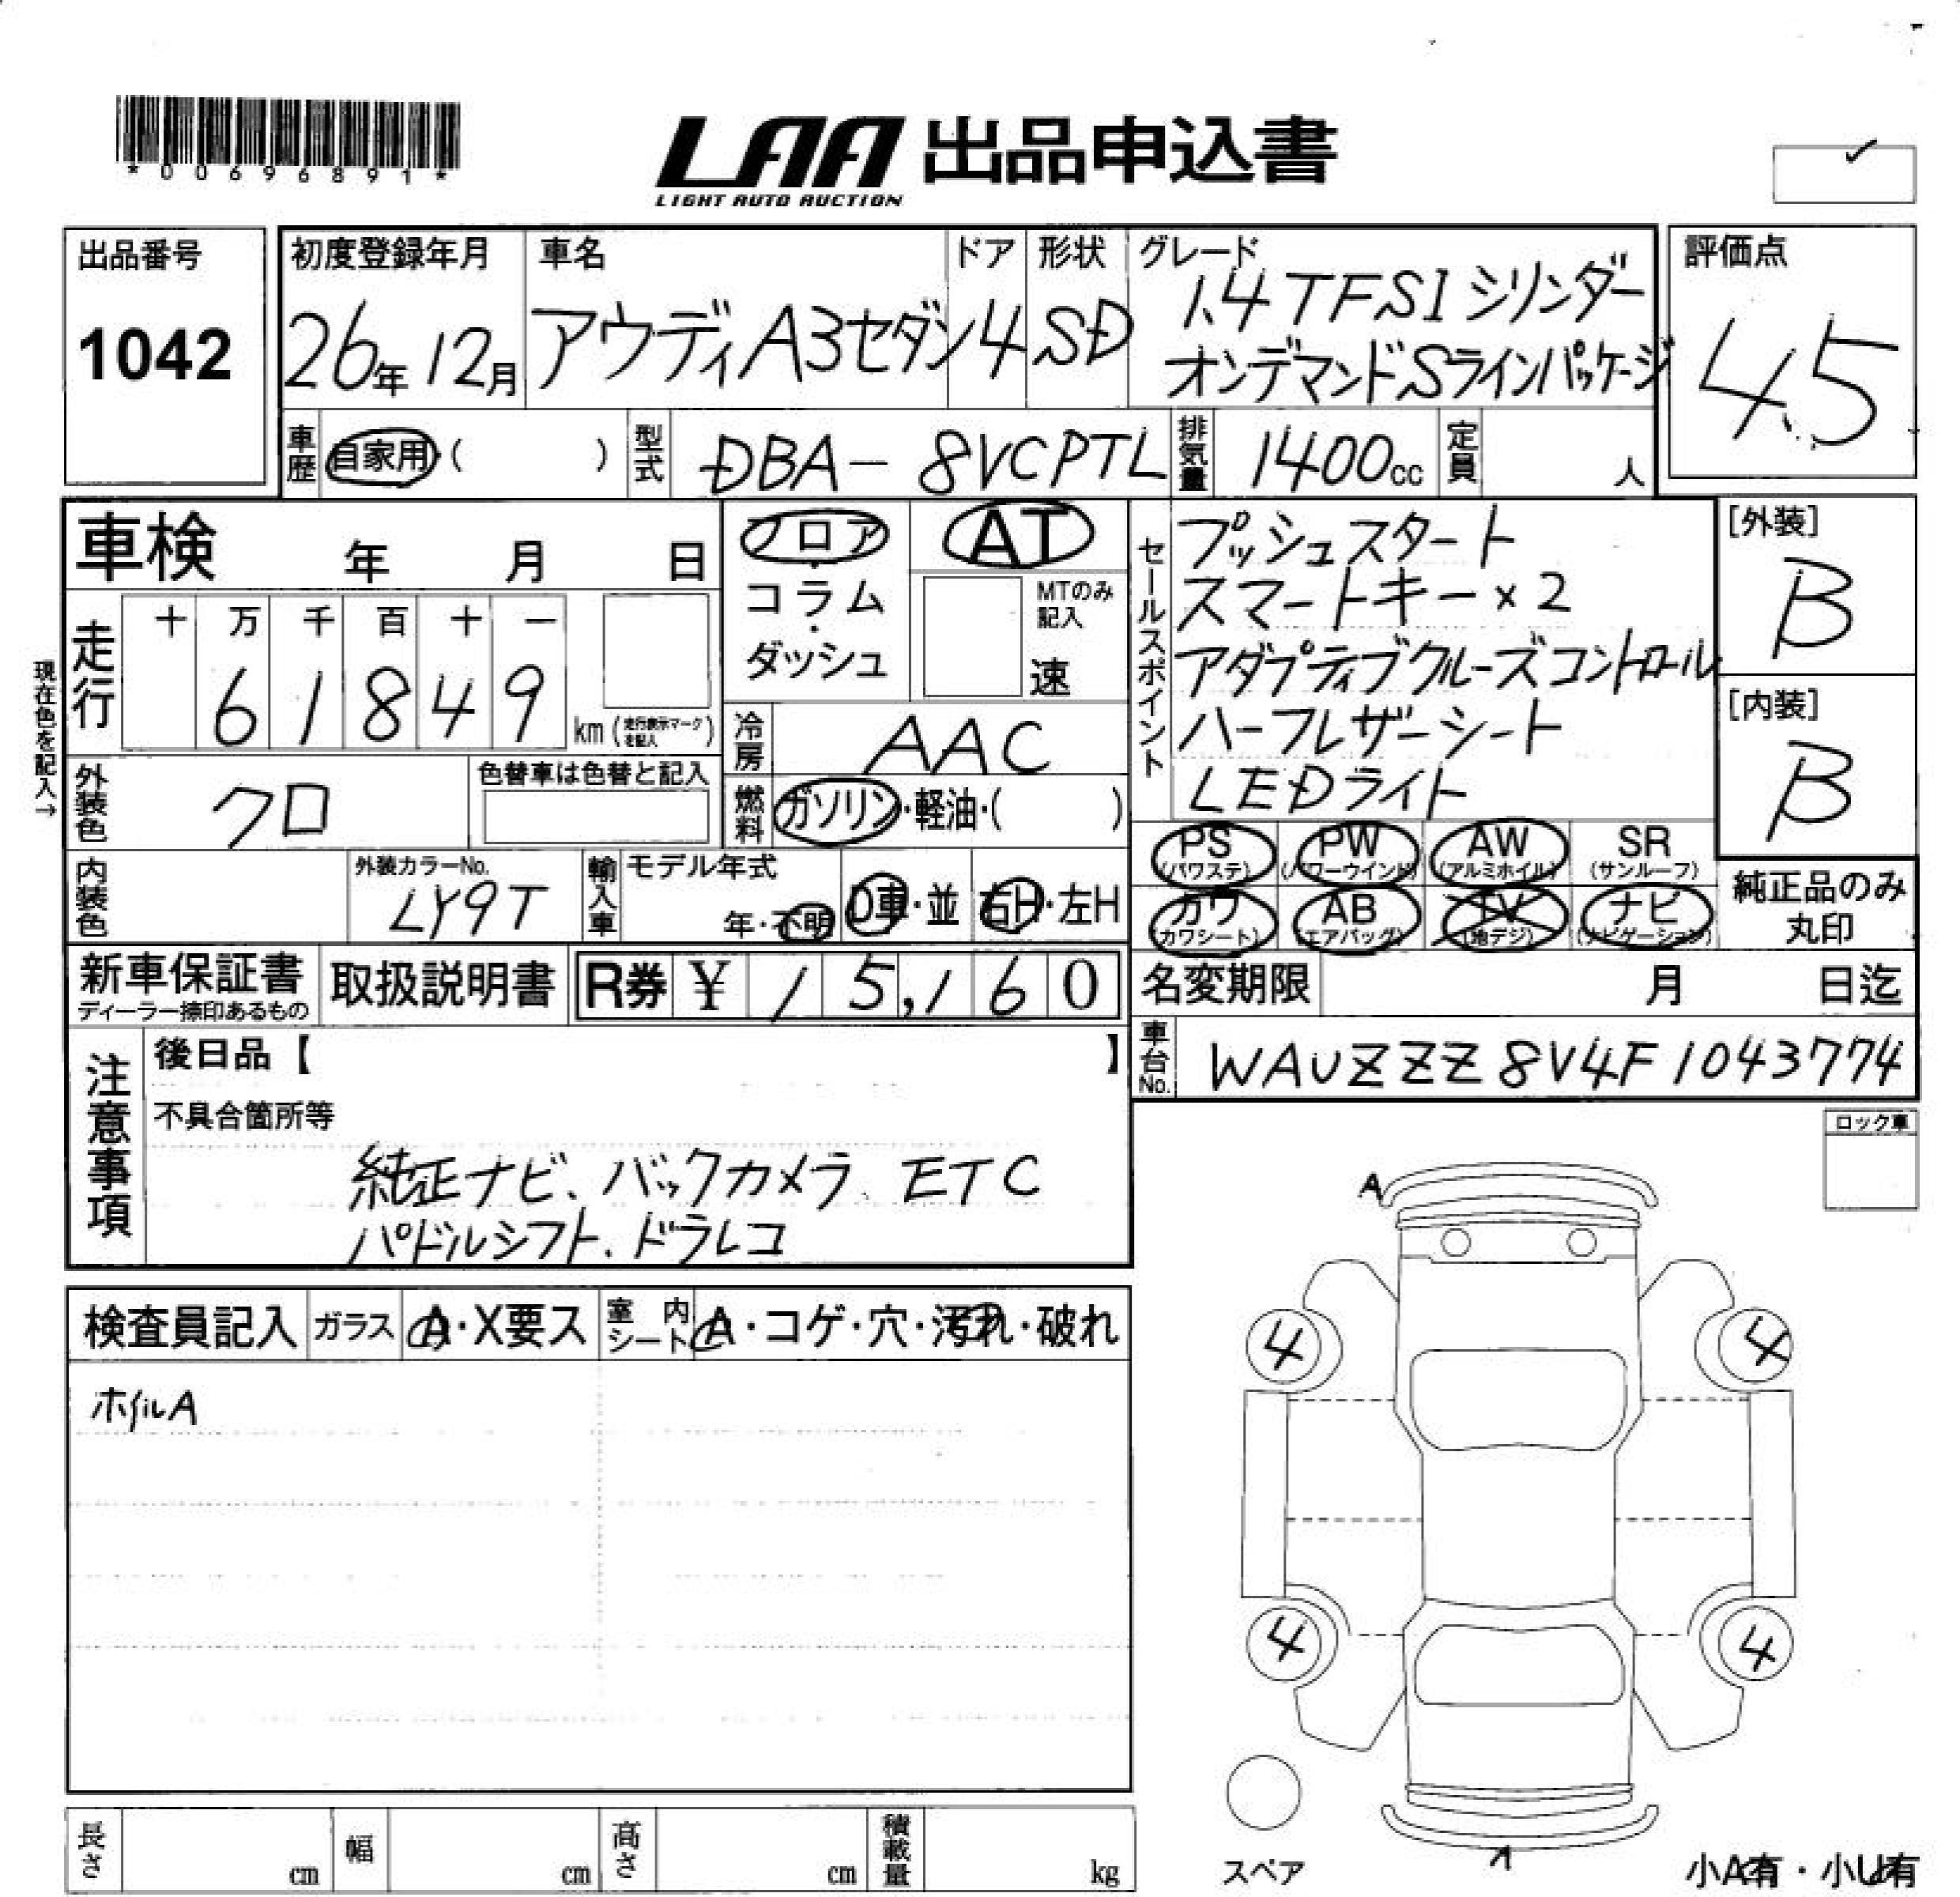 *00696891*
LAA 出品申込書
LIGHT AUTO AUCTION
出品番号
1042
初度登録年月
26年 12月
車名
アウディA3セダン
ドア
4
形状
SD
グレード
1.4 TFSI シリンダー
オンデマンドSラインパッケージ
評価点
4.5
車歴 自家用・( )
型式 DBA-8VCPTL
排気量 1400cc
定員 人
車検 年 月 日
現在色を記入→
走行
十 万 千 百 十 一
6 1 8 4 9
km (走行表示マークを記入)
フロア・コラム・ダッシュ
AT
MTのみ記入
速
冷房 AAC
燃料 ガソリン・軽油・( )
外装色 クロ
色替車は色替と記入
内装色
外装カラーNo.
LY9T
輸入車
モデル年式
年・不明
D車・並
右H・左H
セールスポイント
プッシュスタート
スマートキー×2
アダプティブクルーズコントロール
ハーフレザーシート
LEDライト
[外装]
B
[内装]
B
PS (パワステ)
PW (パワーウインド)
AW (アルミホイル)
SR (サンルーフ)
カワ (カワシート)
AB (エアバッグ)
TV (地デジ)
ナビ (ナビゲーション)
純正品のみ
丸印
新車保証書
ディーラー捺印あるもの
取扱説明書
R券 ¥ 15,160
名変期限 月 日迄
車台No. WAUZZZ8V4F1043774
注意事項
後日品【 】
不具合箇所等
純正ナビ、バックカメラ、ETC
パドルシフト、ドラレコ
ロック車
検査員記入
ガラス A・X要ス
室内シート A・コゲ・穴・汚れ・破れ
ホイルA
A
4
4
4
4
スペア
小A有・小U有
長さ cm
幅 cm
高さ cm
積載量 kg